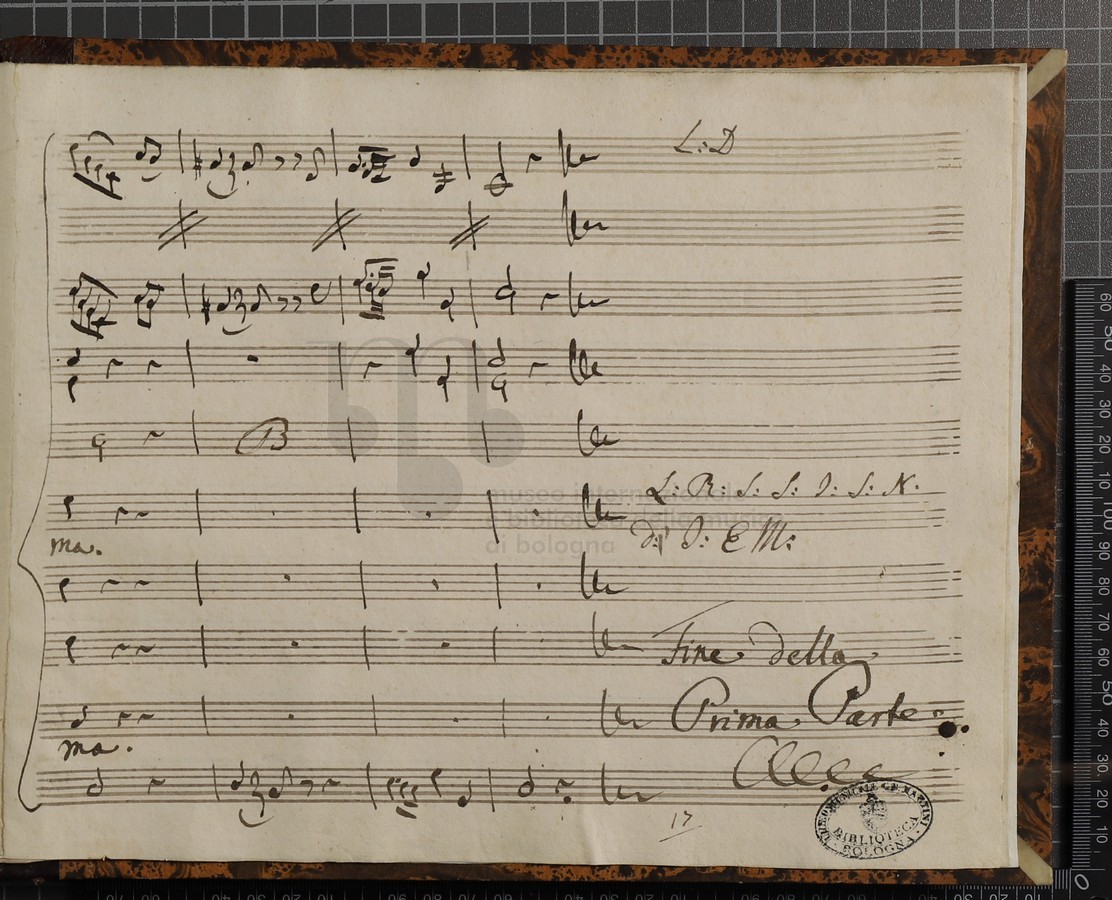 L: D
museo internazionale
e biblioteca della musica
di bologna
L: B: S: S: I: S: N:
D: I: E M:
ma.
Fine della
Prima Parte
ma.
17
BIBLIOTECA
BOLOGNA